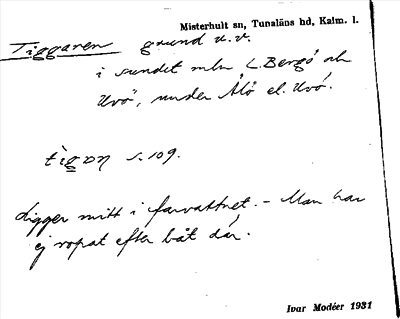 Misterhult sn, Tunaläns hd, Kalm. l.
Tiggaren grund u.v.
i sundet mln L. Bergö och
Uvö, under Älö el. Uvö.
tìgɷŋ s. 109.
digger mitt i farvattnet. - Man har
ej ropat efter båt där.
Ivar Modéer 1931